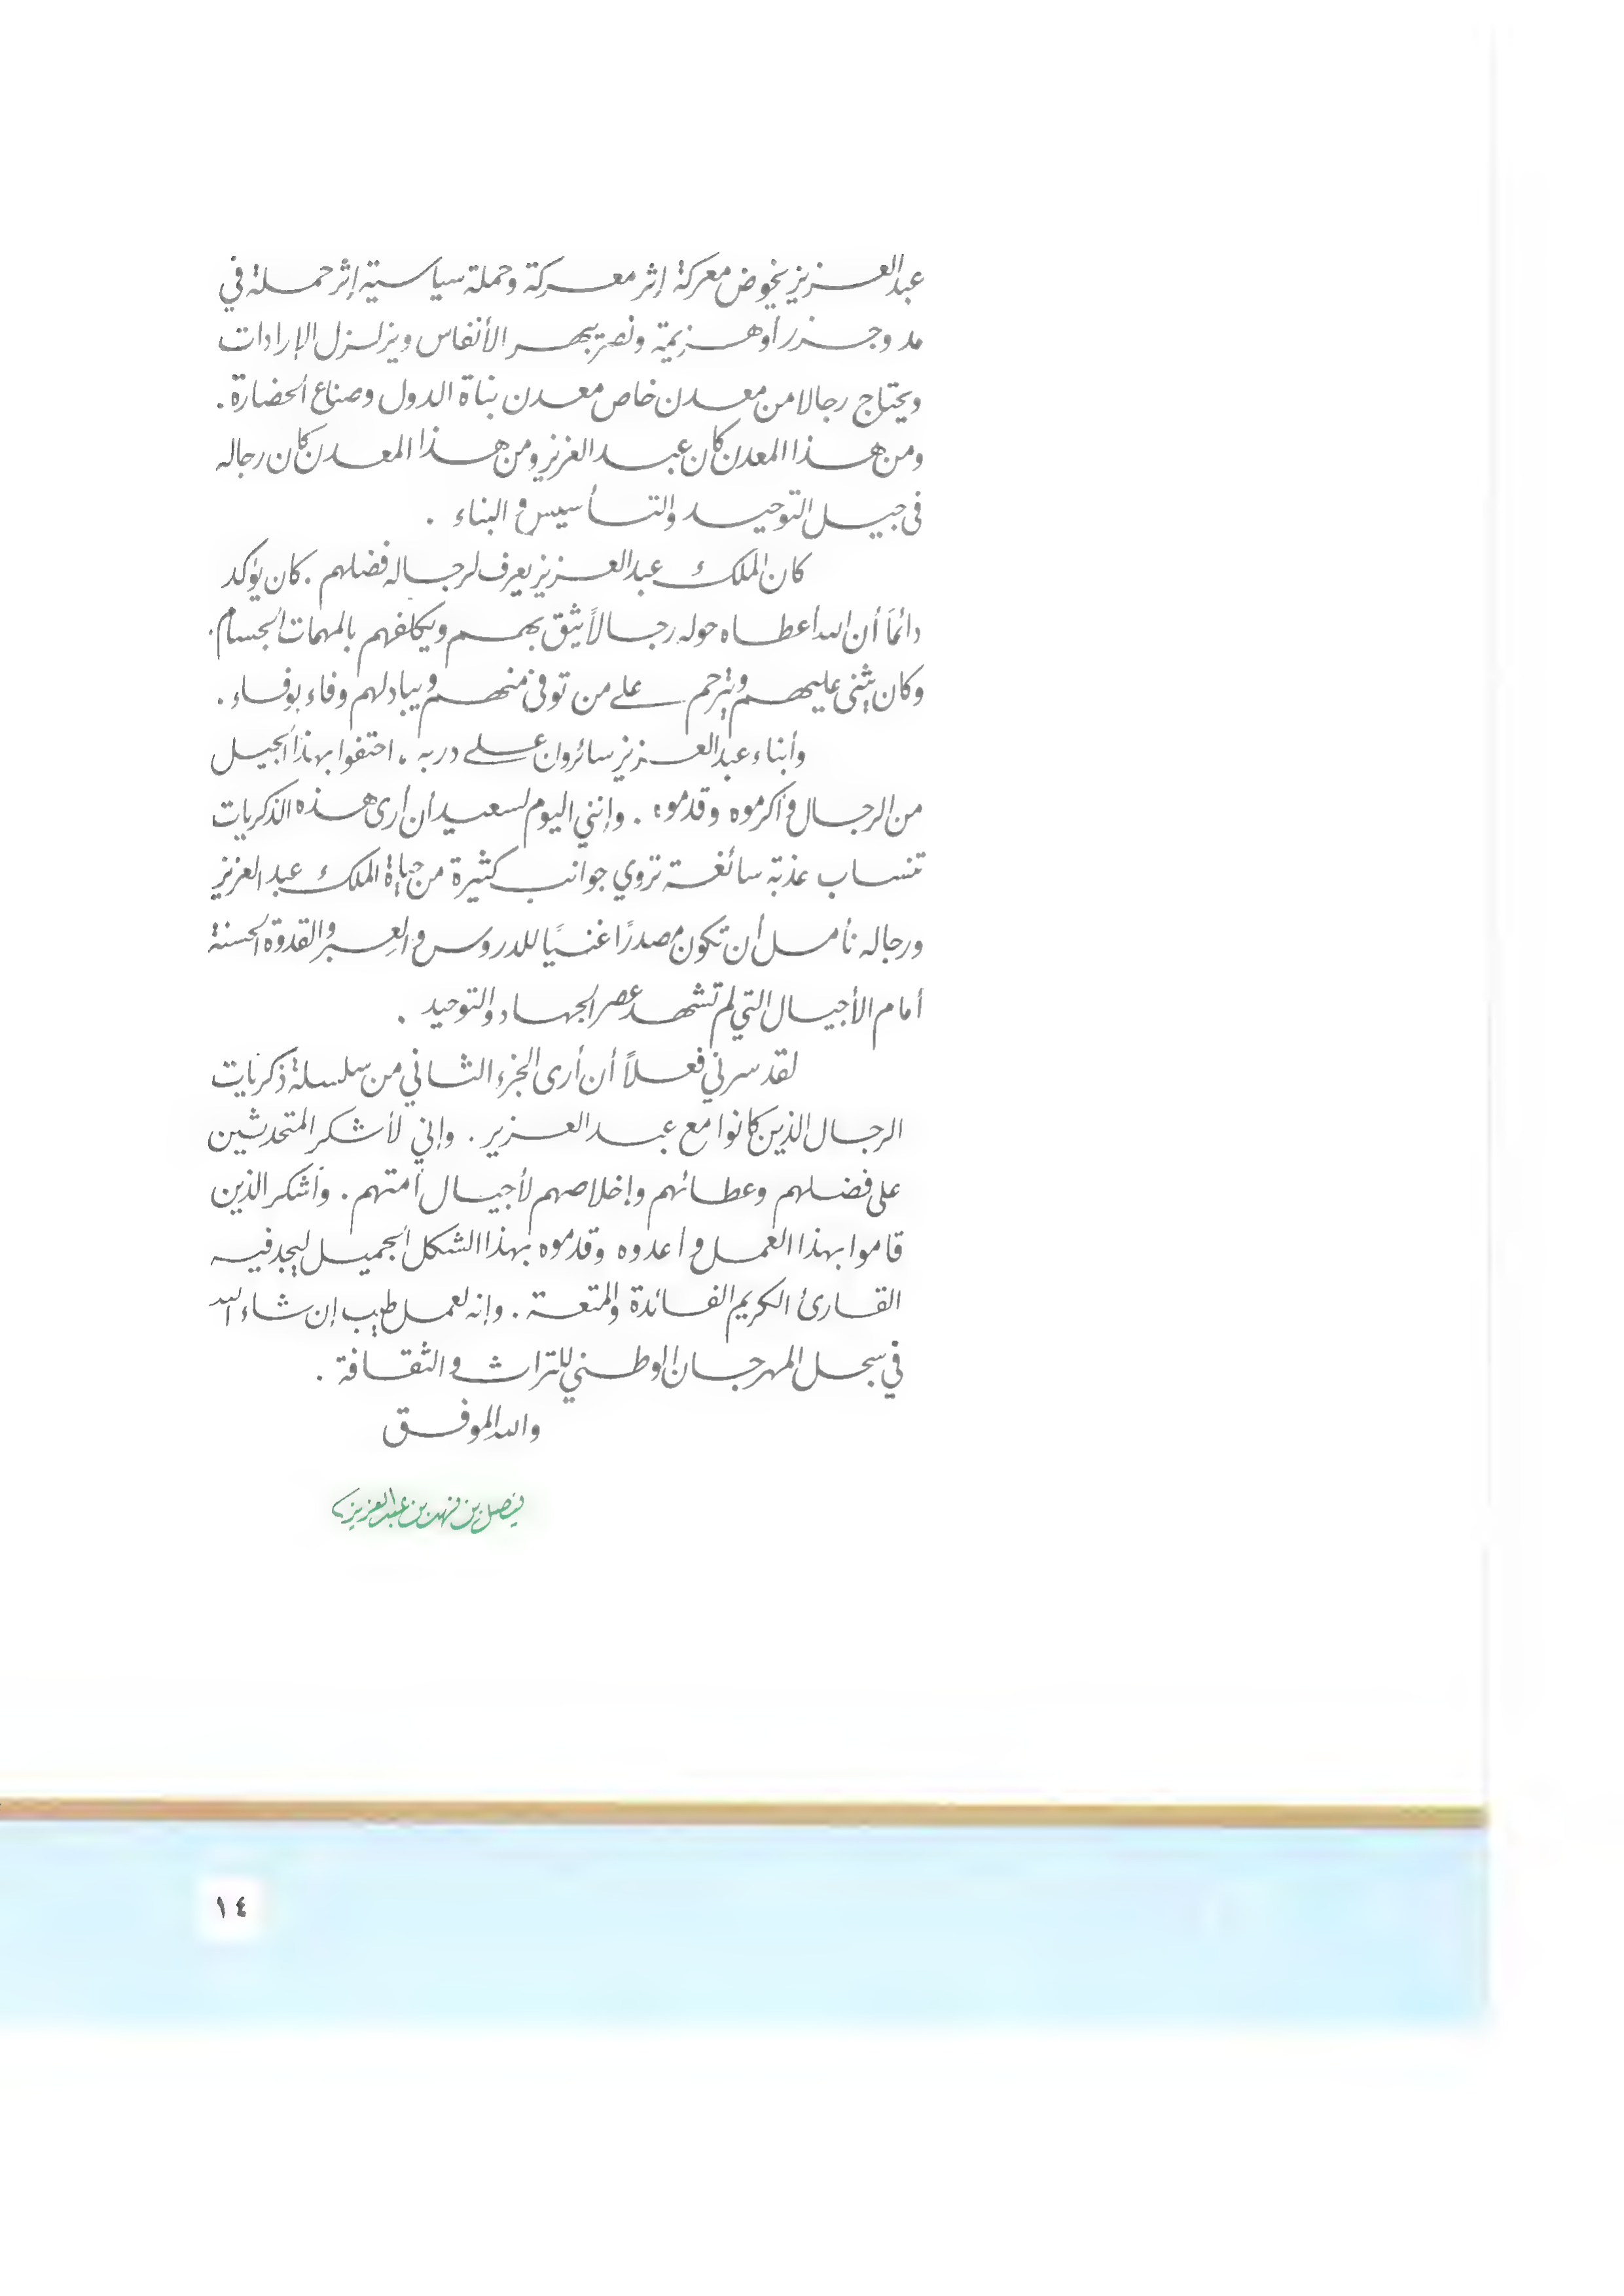 عبدالعزيز يخوض معركة إثر معركة وحملة سياسية إثر حملة في
مد وجزر أو هزيمة ونصر يبهر الأنفاس ويزلزل الإرادات
ويحتاج رجالا من معدن خاص معدن بناة الدول وصناع الحضارة .
ومن هذا المعدن كان عبد العزيز ومن هذا المعدن كان رجاله
في جيل التوحيد والتأسيس والبناء .
كان الملك عبدالعزيز يعرف لرجاله فضلهم . كان يؤكد
دائمًا أن الله أعطاه حوله رجالاً يثق بهم ويكلفهم بالمهمات الجسام .
وكان يثني عليهم ويترحم على من توفي منهم ويبادلهم وفاء بوفاء .
وأبناء عبدالعزيز سائرون على دربه . احتفوا بهذا الجيل
من الرجال وأكرموه وقدموه . وإنني اليوم لسعيد أن أرى هذه الذكريات
تنساب عذبة سائغة تروي جوانب كثيرة من حياة الملك عبد العزيز
ورجاله نأمل أن تكون مصدرًا غنيًا للدروس والعِبر والقدوة الحسنة
أمام الأجيال التي لم تشهد عصر الجهاد والتوحيد .
لقد سرني فعلاً أن أرى الجزء الثاني من سلسلة ذكريات
الرجال الذين كانوا مع عبد العزيز . وإني لأشكر المتحدثين
على فضلهم وعطائهم وإخلاصهم لأجيال أمتهم . وأشكر الذين
قاموا بهذا العمل وأعدوه وقدموه بهذا الشكل الجميل ليجد فيه
القارئ الكريم الفائدة والمتعة . وإنه لعمل طيب إن شاء الله
في سجل المهرجان الوطني للتراث والثقافة .
والله الموفق
فيصل بن فهد بن عبد العزيز
١٤